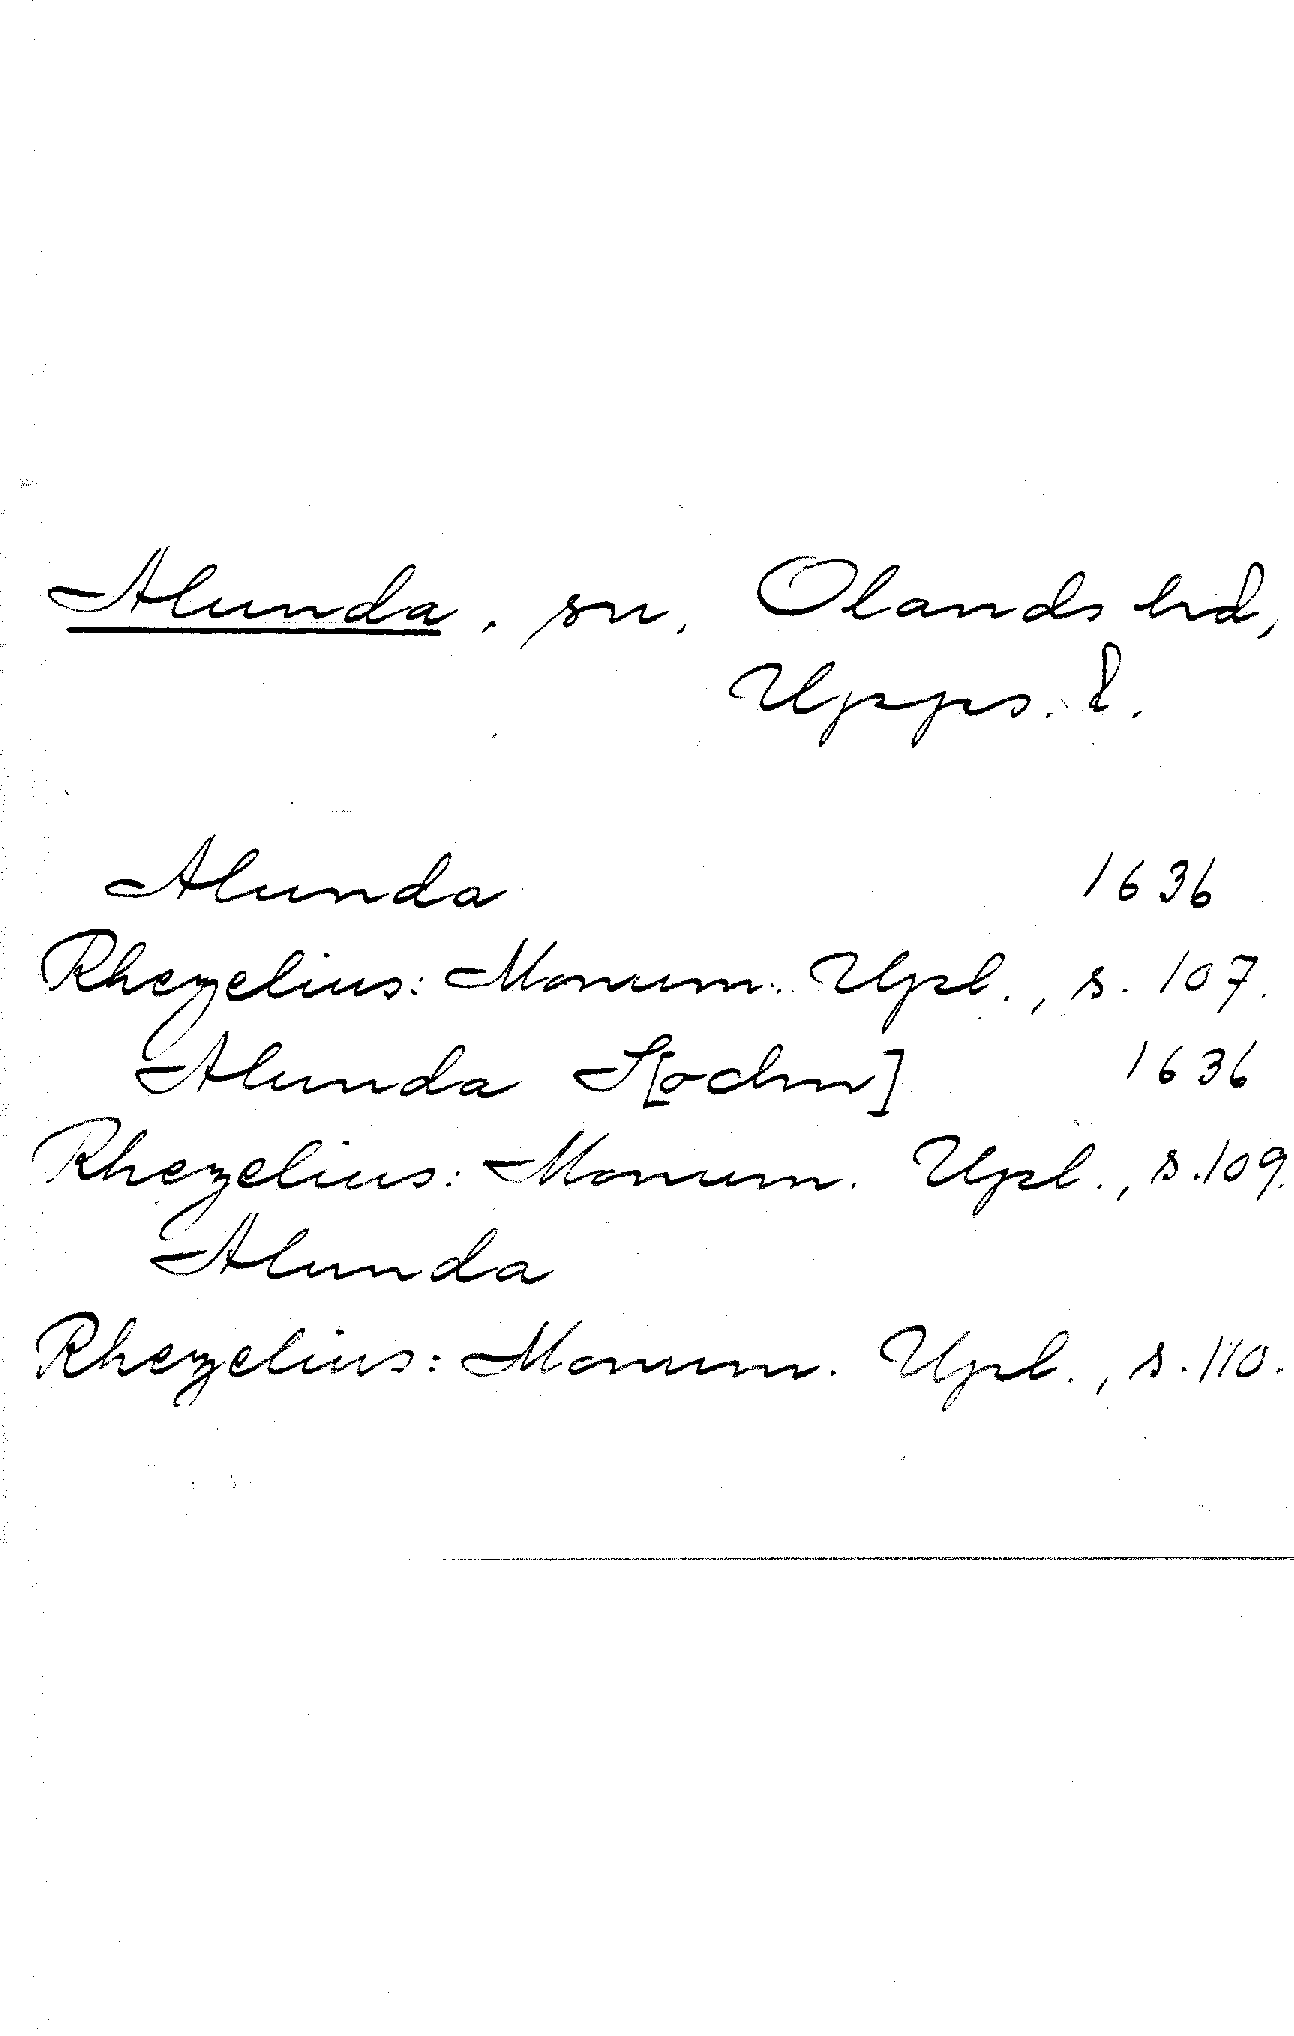 Alunda, sn, Olands hd,
Upps. l.
Alunda 1636
Rhezelius: Monum. Upl., s. 107.
Alunda S[ochn] 1636
Rhezelius: Monum. Upl., s. 109.
Alunda
Rhezelius: Monum. Upl., s. 110.